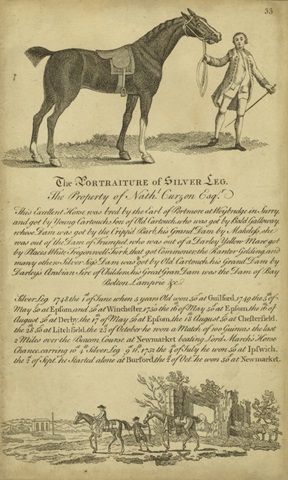 33
The PORTRAITURE of SILVER LEG.
The Property of Nath.l Curzon Esq.r
This Excellent Horse was bred by the Earl of Portmore at Weybridge in Surry,
and got by Young Cartouch, Son of Old Cartouch, who was got by Bald Galloway
whose Dam was got by the Cripple Barb, his Grand Dam by Makeless, she
was out of the Dam of Trumpet, who was out of a Darley Yellow Mare got
by Place's White Turk, that got Commoner, the Hautboy Gelding, and
many others. Silver Leg's Dam was got by Old Cartouch, his Grand Dam by
Darley's Arabian Sire of Childers, his Great Gran Dam was the Dam of Bay
Bolton, Lamprie &c.
Silver Leg 1748 the 1st of June when 5 years Old won 50 at Guilford, 1749 the 5th of
May 50 at Epsom, and 50 at Winchester, 1750 the 16 of May 50 at Epsom, the 16 of
August 50 at Derby, the 17 of May 50 at Epsom, the 18 August 50 at Chesterfield,
the 28 50 at Litchfield, the 23 of October he won a Match of 100 Guineas the last
2 Miles over the Beacon Course at Newmarket beating Lord March's Horse
Chance, carrying 10 st Silver Leg 9 st 11 lb, 1751 the 4th of July he won 50 at Ipswich,
the 2d of Sept.r he Started alone at Burford, the 6 of Oct. he won 50 at Newmarket.